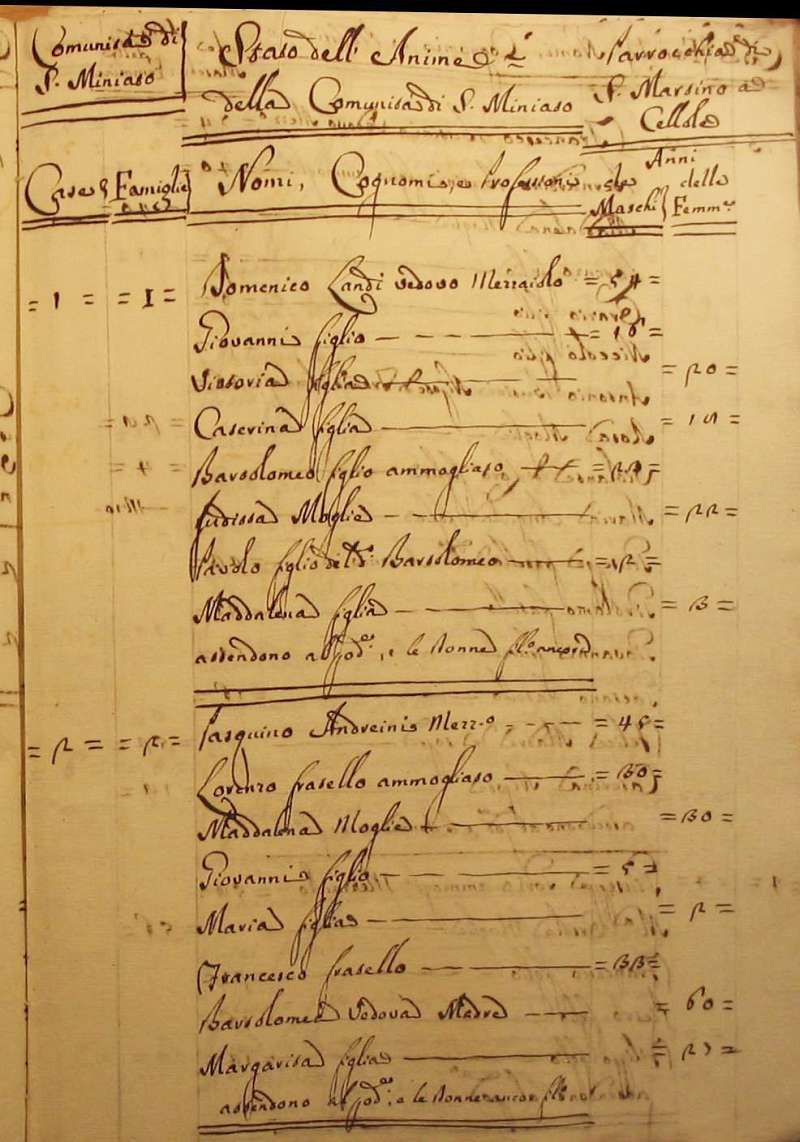 Comunità di S. Miniato
Stato dell' Anime
della Comunità di S. Miniato
Parrocchia di S. Martino a Cellole
Case Famiglie Nomi, Cognomi, e Professioni Anni de Maschi delle Femme
= 1 = = 1 = Domenico Landi Vedovo Mezzaiolo = 54 =
Giovanni figlio = 16 =
Vittoria figlia = 20 =
Caterina figlia
Bartolomeo figlio ammogliato
Moglie = 22 =
Pavolo figlio di Bartolomeo
Maddalena figlia = 3 =
attendono a pod:, e le donne
= 2 = = 2 = Pasquino Andreini Mezz.o = 45 =
Lorenzo fratello ammogliato = 30 =
Maddalena Moglie = 30 =
Giovanni figlio = 5 =
Maria figlia = 2 =
Francesco fratello = 33 =
Bartolomea Vedova Madre = 60 =
Margarita figlia
attendono al pod:, e le donne ancor